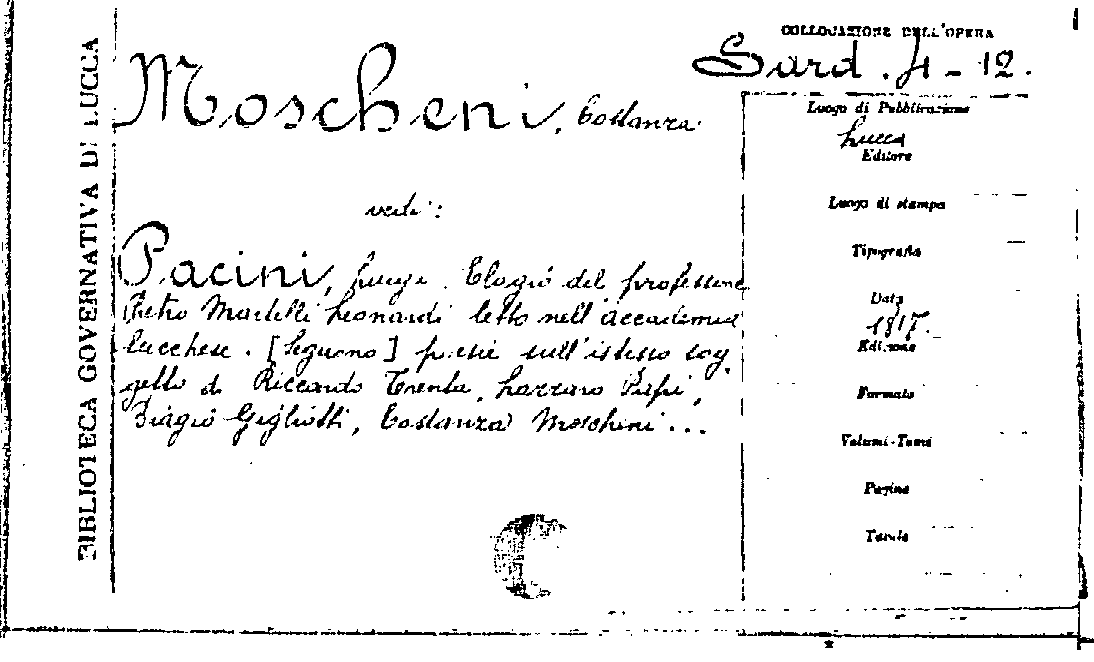 BIBLIOTECA GOVERNATIVA DI LUCCA
COLLOCAZIONE DELL'OPERA
Sard. 4-12.
Moscheni, Costanza
vedi:
Pacini, Luigi. Elogio del professore
Pietro Martelli Leonardi letto nell'accademia
lucchese. [Seguono] poesie sull'istesso sog
getto di Riccardo Trenta, Lazzaro Papi,
Biagio Gigliotti, Costanza Moscheni ...
Luogo di Pubblicazione
Lucca
Editore
Luogo di stampa
Tipografia
Data
1817.
Edizione
Formato
Volumi-Tomi
Pagine
Tavole